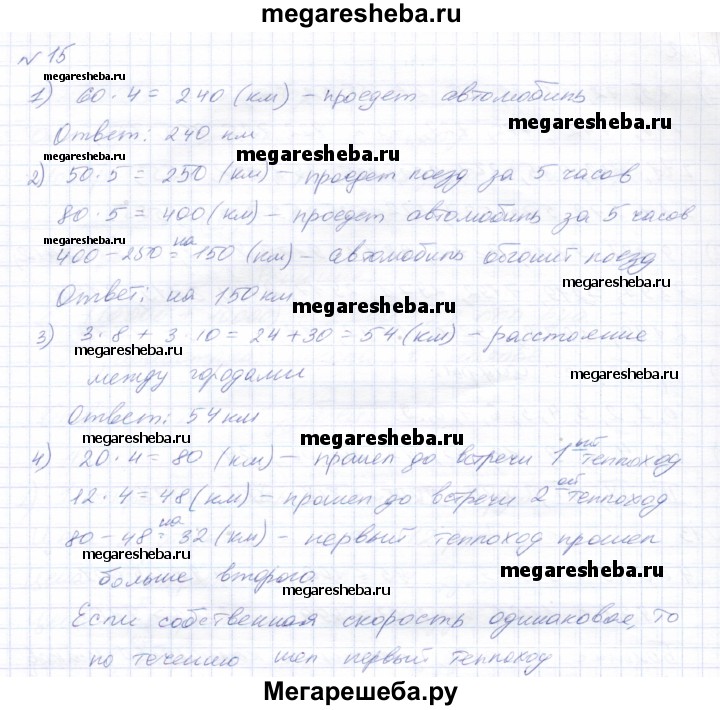 megaresheba.ru
№ 15
megaresheba.ru
1) 60 · 4 = 240 (км) – проедет автомобиль
megaresheba.ru
Ответ: 240 км
megaresheba.ru
2) 50 · 5 = 250 (км) – проедет поезд за 5 часов
80 · 5 = 400 (км) – проедет автомобиль за 5 часов
megaresheba.ru
400 – 250 = на 150 (км) – автомобиль обгонит поезд
megaresheba.ru
Ответ: на 150 км
megaresheba.ru
3) 3 · 8 + 3 · 10 = 24 + 30 = 54 (км) – расстояние
megaresheba.ru
между городами
megaresheba.ru
Ответ: 54 км
megaresheba.ru
megaresheba.ru
4) 20 · 4 = 80 (км) – прошел до встречи 1ый теплоход
12 · 4 = 48 (км) – прошел до встречи 2ой теплоход
80 – 48 = на 32 (км) – первый теплоход прошел
megaresheba.ru
больше второго.
megaresheba.ru
megaresheba.ru
Если собственная скорость одинаковая, то
по течению шел первый теплоход
Мегарешеба.ру